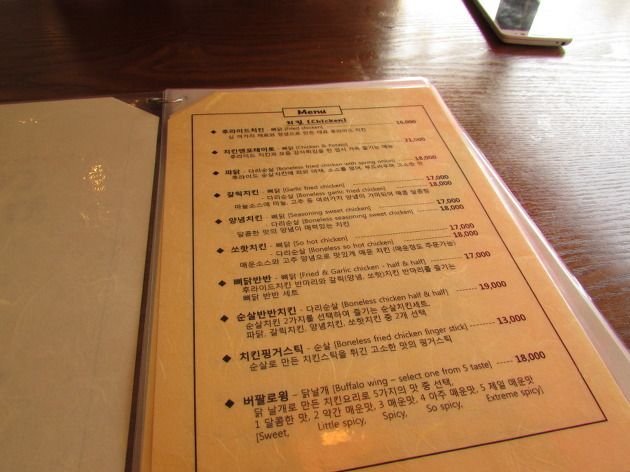 Menu
치킨 [Chicken]
◆ 후라이드치킨 - 뼈닭 [Fried chicken] 16,000
십 여가지 재료와 양념으로 만든 대표 후라이드 치킨
◆ 치킨앤포테이토 - 뼈닭 [Chicken & Potato] 21,000
후라이드 치킨과 모듬 감자튀김을 한 접시 가득 즐기는 메뉴
◆ 파닭 - 다리순살 [Boneless fried chicken with spring onion] 18,000
후라이드 순살치킨에 파와 야채, 소스를 얹어, 부드러우며 고소한 맛
◆ 갈릭치킨 - 뼈닭 [Garlic fried chicken] 17,000
- 다리순살 [Boneless garlic fried chicken] 18,000
마늘소스에 마늘, 고추 등 여러가지 양념이 가미되어 매콤 달콤함
◆ 양념치킨 - 뼈닭 [Seasoning sweet chicken] 17,000
- 다리순살 [Boneless seasoning sweet chicken] 18,000
달콤한 맛의 양념이 매력있는 치킨
◆ 쏘핫치킨 - 뼈닭 [So hot chicken] 17,000
- 다리순살 [Boneless so hot chicken] 18,000
매운소스와 고추 양념으로 맛있게 매운 치킨 (매운정도 주문가능)
◆ 뼈닭반반 - 뼈닭 [Fried & Garlic chicken - half & half] 17,000
후라이드치킨 반마리와 갈릭(양념, 쏘핫)치킨 반마리를 즐기는
뼈닭 반반 세트
◆ 순살반반치킨 - 다리순살 [Boneless chicken half & half] 19,000
순살치킨 2가지를 선택하여 즐기는 순살치킨세트.
파닭, 갈릭치킨, 양념치킨, 쏘핫치킨 중 2개 선택
◆ 치킨핑거스틱 - 순살 [Boneless fried chicken finger stick] 13,000
순살로 만든 치킨스틱을 튀긴 고소한 맛의 핑거스틱
◆ 버팔로윙 - 닭날개 [Buffalo wing – select one from 5 taste] 18,000
닭 날개로 만든 치킨요리로 5가지의 맛 중 선택,
1 달콤한 맛, 2 약간 매운맛, 3 매운맛, 4 아주 매운맛, 5 제일 매운맛
[Sweet, Little spicy, Spicy, So spicy, Extreme spicy]